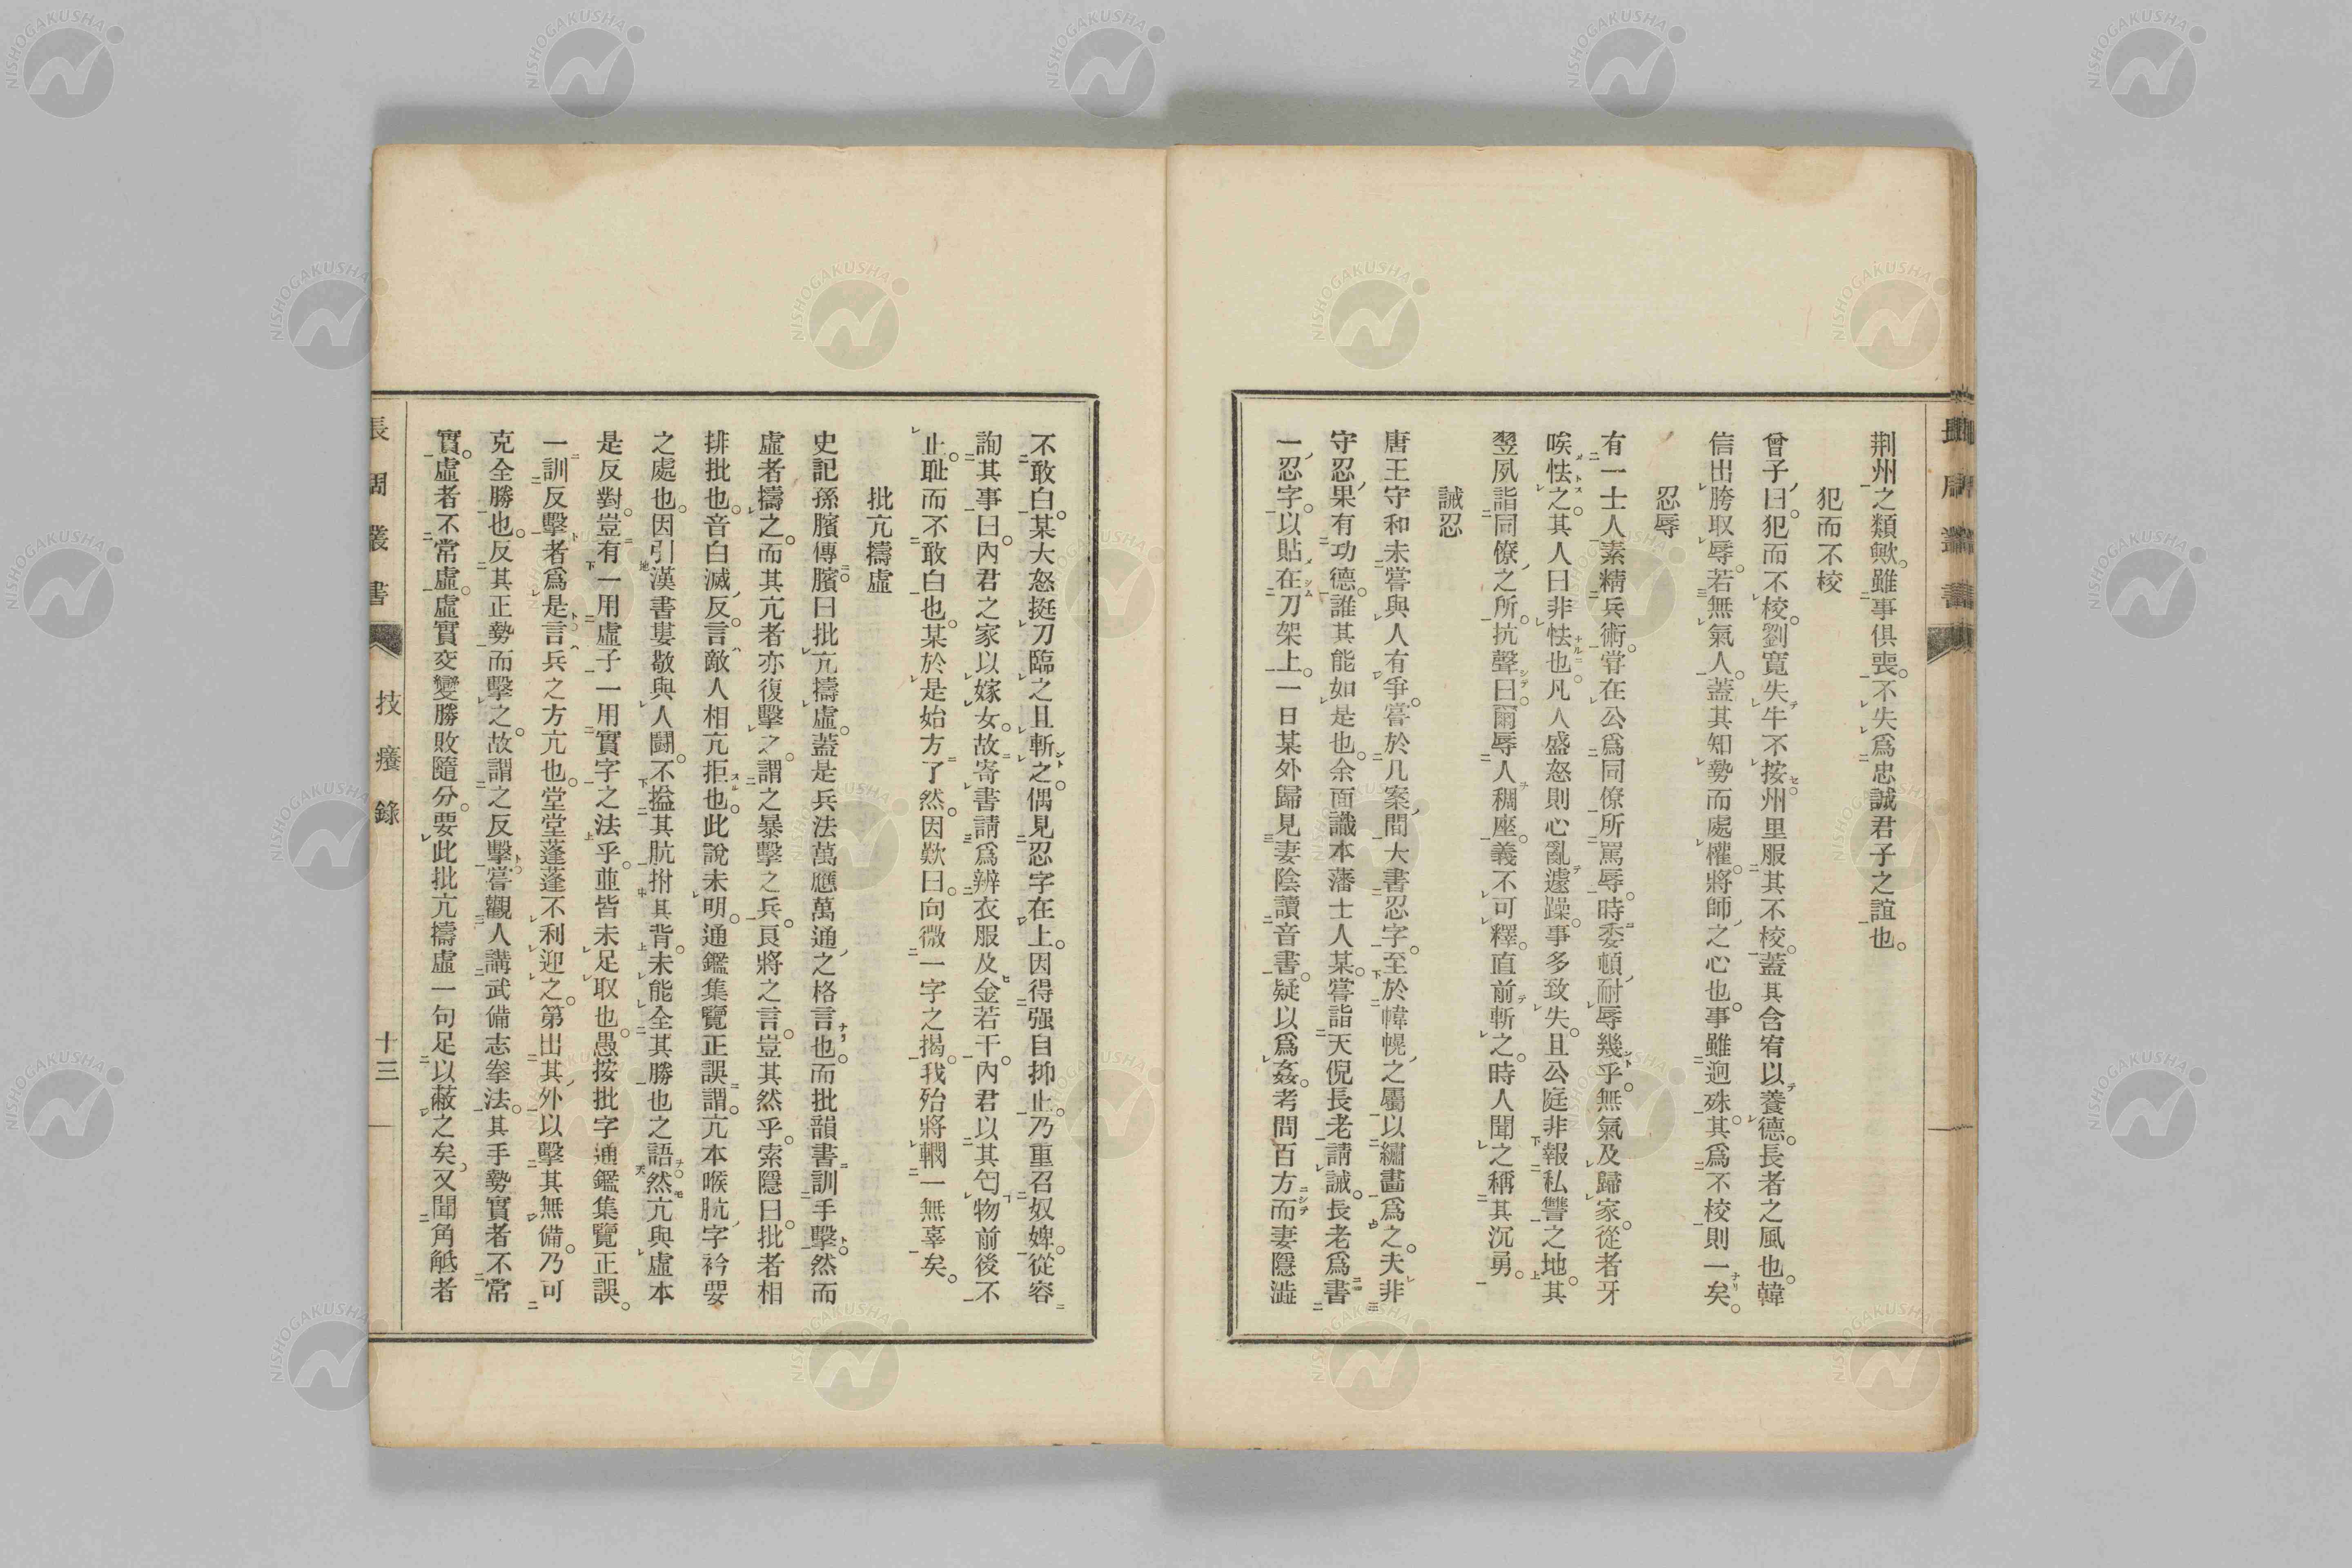 荆州之類歟。雖事俱喪。不失爲忠誠君子之誼也。
犯而不校
曾子曰。犯而不校。劉寬失牛不按州里服其不校。蓋其含宥以養德。長者之風也。韓
信出胯取辱。若無氣人。蓋其知勢而處權。將師之心也。事雖逈殊。其爲不校則一矣。
忍辱
有一士人素精兵術。甞在公爲同僚所罵辱。時委頓耐辱幾乎。無氣及歸家。從者牙
唉怯之。其人曰非怯也。凡人盛怒則心亂遽躁。事多致失。且公庭非報私讐之地。其
翌夙詣同僚之所。抗聲曰。爾辱人稠座。義不可釋。直前斬之。時人聞之稱其沉勇。
誡忍
唐王守和未嘗與人有爭。嘗於几案間大書忍字。至於幃幌之屬以繡畵爲之。夫非
守忍果有功德。誰其能如是也。余面識本藩士人某。嘗詣天倪長老請誡。長老爲書
一忍字。以貼在刀架上。一日某外歸見妻陰讀音書。疑以爲姦。考問百方而妻隱澁
不敢白。某大怒挺刀臨之且斬之。偶見忍字在上。因得强自抑止。乃重召奴婢。從容
詢其事曰。內君之家以嫁女。故寄書請爲辨衣服及金若干。內君以其匄物前後不
止。耻而不敢白也。某於是始方了然。因歎曰。向微一字之揭。我殆將輙一無辜矣。
批亢擣虛
史記孫臏傳。臏曰批亢擣虛。蓋是兵法萬應萬通之格言也。而批韻書訓手擊。然而
虛者擣之。而其亢者亦復擊之。謂之暴擊之兵。良將之言。豈其然乎。索隱曰。批者相
排批也。音白滅反。言敵人相亢拒也。此說未明。通鑑集覽正誤謂。亢本喉肮字衿要
之處也。因引漢書婁敬與人鬪。不搤其肮拊其背。未能全其勝也之語。然亢與虛本
是反對。豈有一用虛子一用實字之法乎。並皆未足取也。愚按批字通鑑集覽正誤。
一訓反擊者爲是。言兵之方亢也。堂堂蓬蓬不利迎之。第出其外以擊其無備。乃可
克全勝也。反其正勢而擊之。故謂之反擊。嘗觀人講武備志拳法。其手勢實者不常
實。虛者不常虛。虛實交變勝敗隨分。要此批亢擣虛一句足以蔽之矣。又聞角觝者
技癢錄
十三